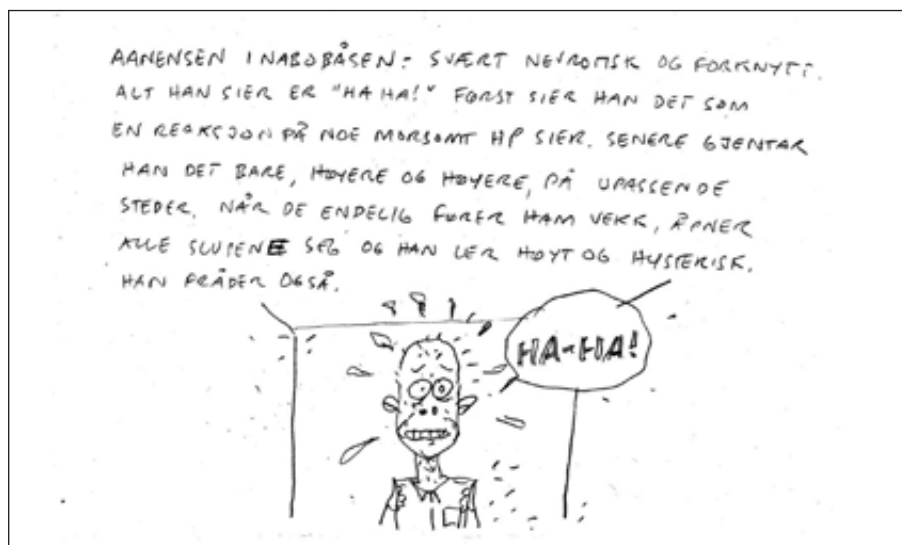 AANENSEN I NABOBÅSEN: SVÆRT NEVROTISK OG FORKNYTT.
ALT HAN SIER ER "HA HA!" FØRST SIER HAN DET SOM
EN REAKSJON PÅ NOE MORSOMT HP SIER. SENERE GJENTAR
HAN DET BARE, HØYERE OG HØYERE, PÅ UPASSENDE
STEDER. NÅR DE ENDELIG FØRER HAM VEKK, ÅPNER
ALLE SLUSENE SEG OG HAN LER HØYT OG HYSTERISK.
HAN FRÅDER OGSÅ.
HA-HA!